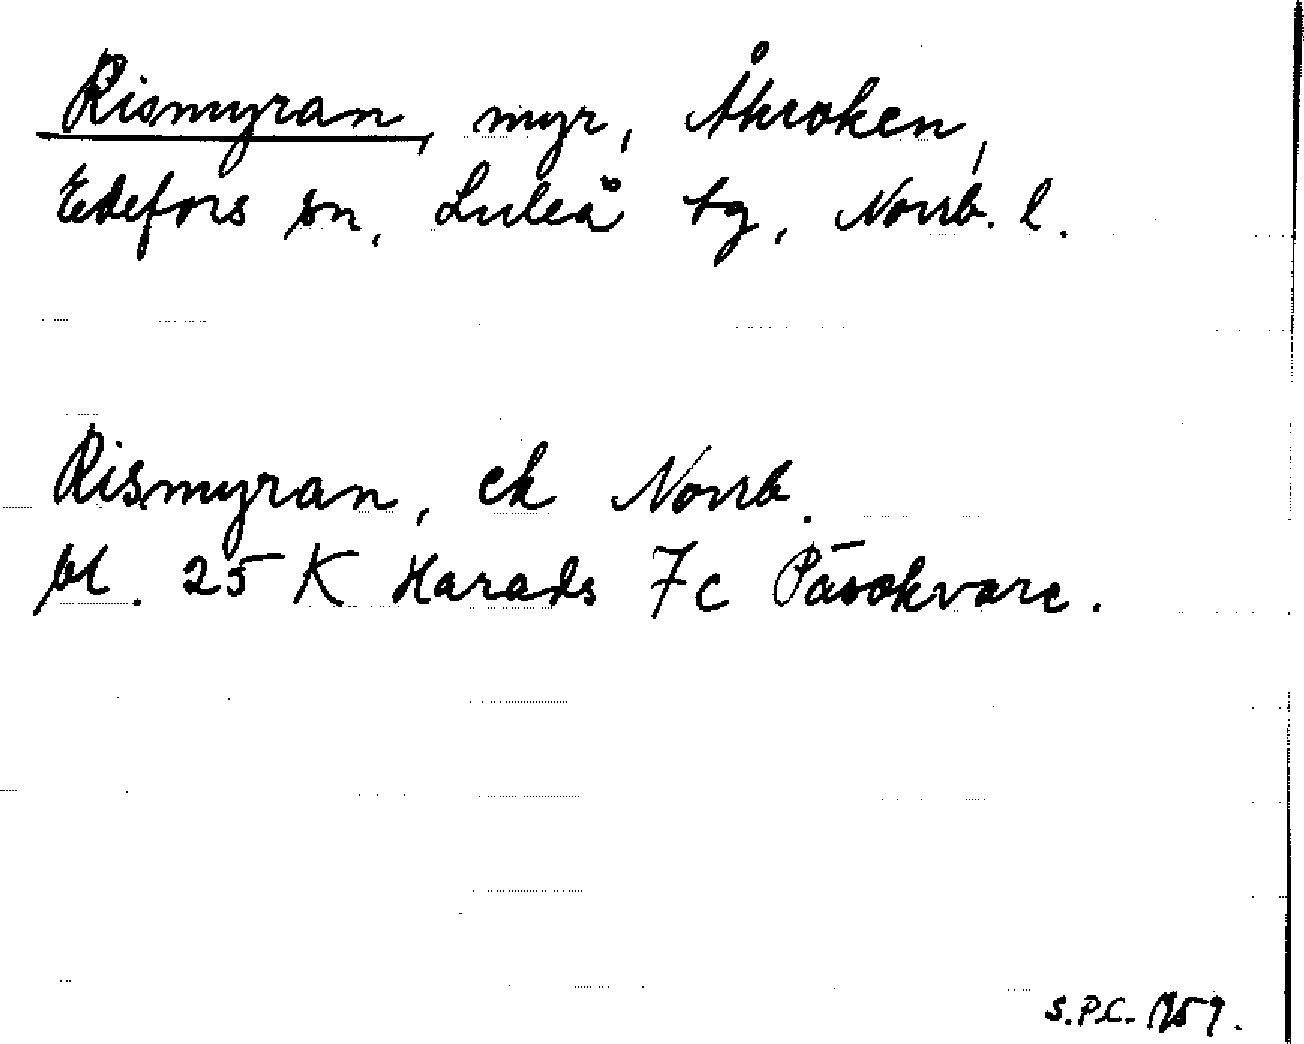 Rismyran, myr, Åkroken,
Edefors sn, Luleå tg, Norrb. l.
Rismyran, ek Norrb.
bl. 25 K Harads 7c Påsokvare.
S.P.C. 1959.